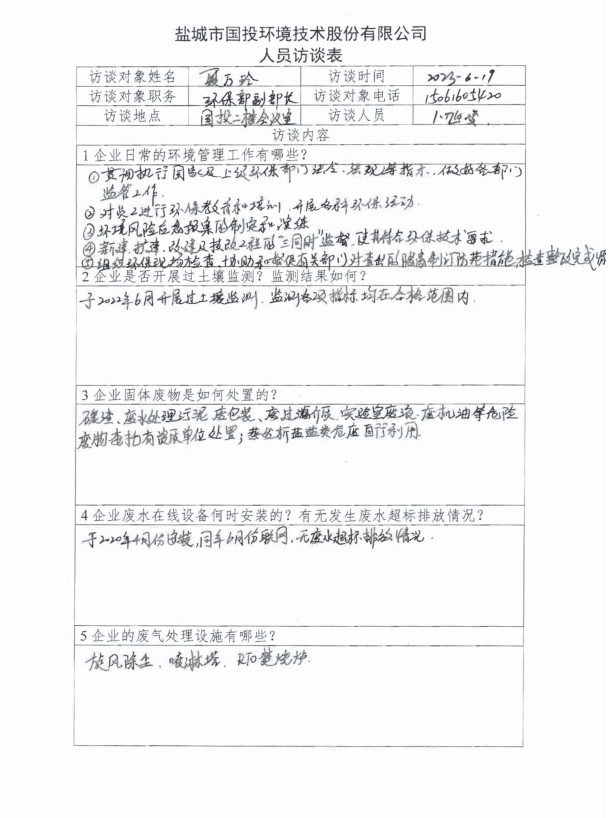 盐城市国投环境技术股份有限公司
人员访谈表
访谈对象姓名 夏万玲 访谈时间 2023-6-19
访谈对象职务 环保部副部长 访谈对象电话 15061605420
访谈地点 国投二楼会议室 访谈人员
访谈内容
1 企业日常的环境管理工作有哪些?
①贯彻执行国家及上级环保部门法令、法规等指示,做好各部门
监管工作.
②对员工进行环保教育和培训,开展各种环保活动.
③环境风险应急预案的制定和演练
④新建、扩建、改建及技改工程的"三同时"监督,使其符合环保技术要求.
⑤组织环保现场检查,协助和督促有关部门对查出的隐患制订防范措施,检查整改完成
2 企业是否开展过土壤监测? 监测结果如何?
于2022年6月开展过土壤监测. 监测各项指标均在合格范围内.
3 企业固体废物是如何处置的?
碳渣、废水处理污泥、废包装、废过滤介质、实验室废液、废机油等危险
废物委托有资质单位处置;蒸发析盐盐类危废自行利用.
4 企业废水在线设备何时安装的? 有无发生废水超标排放情况?
于2020年4月份安装,同年6月份联网,无废水超标排放情况.
5 企业的废气处理设施有哪些?
旋风除尘、喷淋塔、RTO焚烧炉.